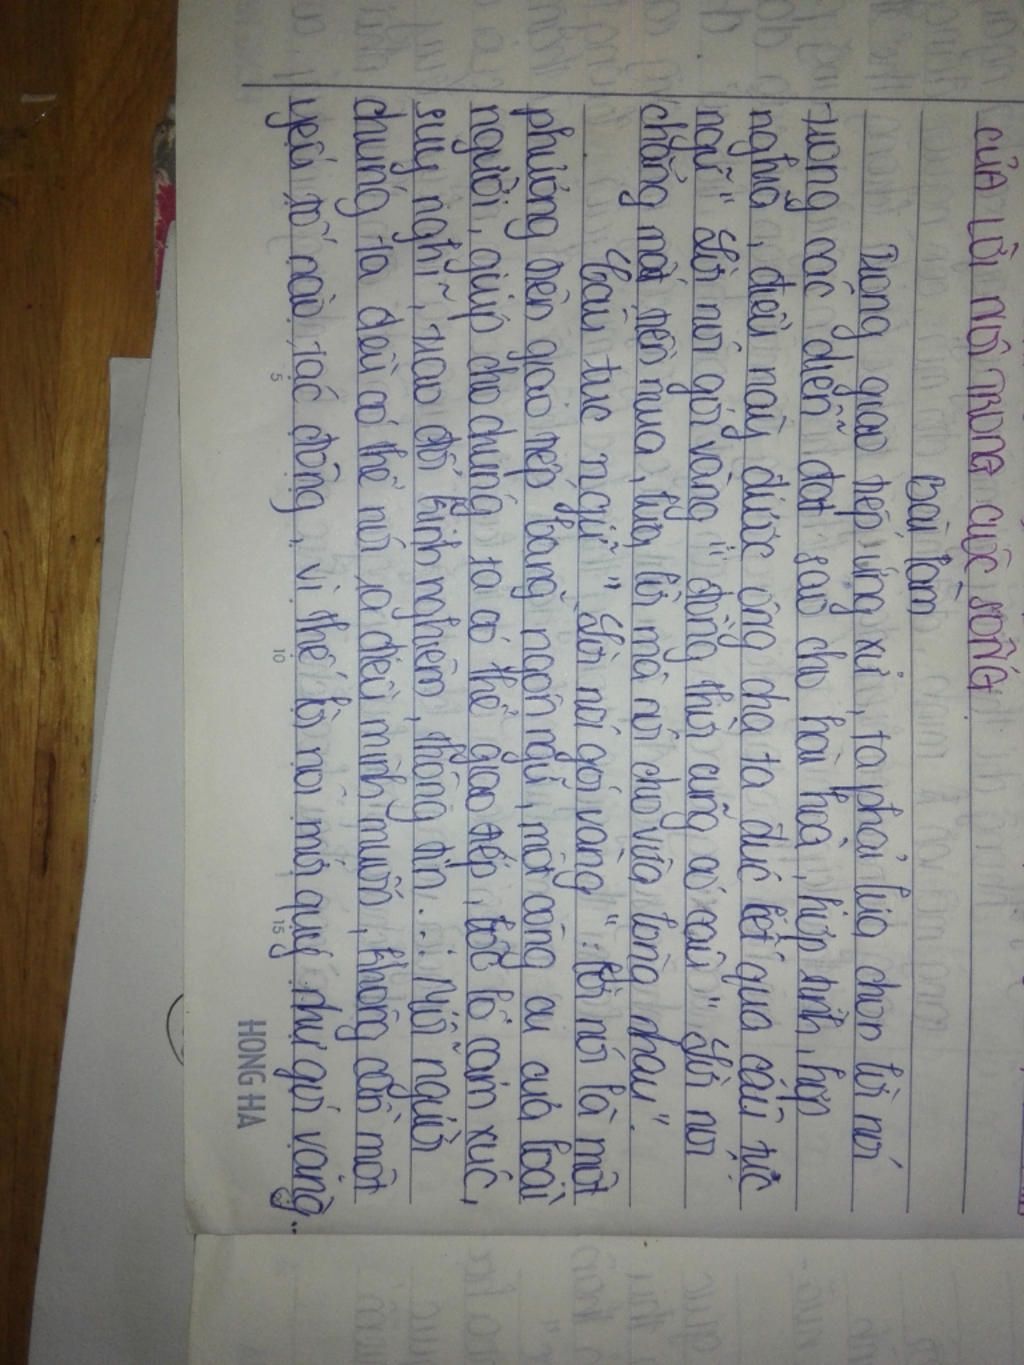 CỦA LỜI NÓI TRONG CUỘC SỐNG
Bài làm
Trong giao tiếp ứng xử, ta phải lựa chọn lời nói
trong các diễn đạt sao cho hài hoà, hợp tình, hợp
nghĩa, điều này được ông cha ta đúc kết qua câu tục
ngữ " Lời nói gói vàng " đồng thời cũng có câu " Lời nói
chẳng mất tiền mua, lựa lời mà nói cho vừa lòng nhau".
Câu tục ngữ " Lời nói gói vàng ": Lời nói là một
phương tiện giao tiếp bằng ngôn ngữ, một công cụ của loài
người, giúp cho chúng ta có thể giao tiếp, bộc lộ cảm xúc,
suy nghĩ, trao đổi kinh nghiệm, thông tin... Mỗi người
chúng ta đều có thể nói ra điều mình muốn, không cần một
yếu tố nào tác động, vì thế lời nói mới quý như gói vàng.
5
10
15
HONG HA